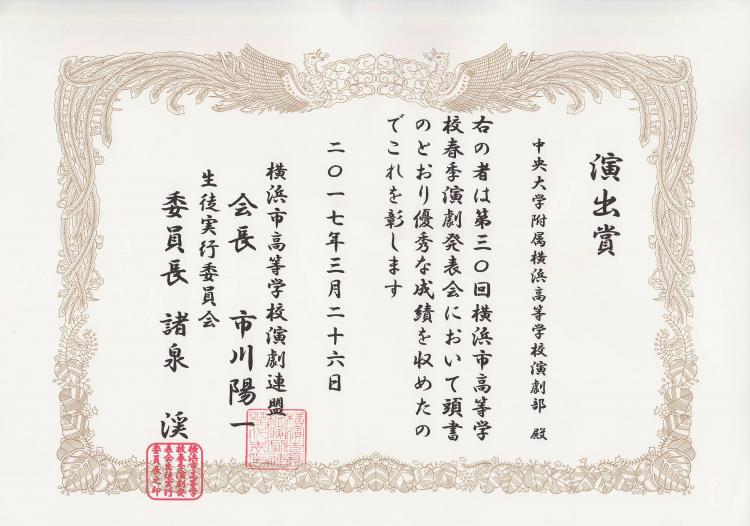 演出賞
中央大学附属横浜高等学校演劇部 殿
右の者は第三〇回横浜市高等学
校春季演劇発表会において頭書
のとおり優秀な成績を収めたの
でこれを彰します
二〇一七年三月二十六日
横浜市高等学校演劇連盟
会長 市川陽一
生徒実行委員会
委員長 諸泉 渓